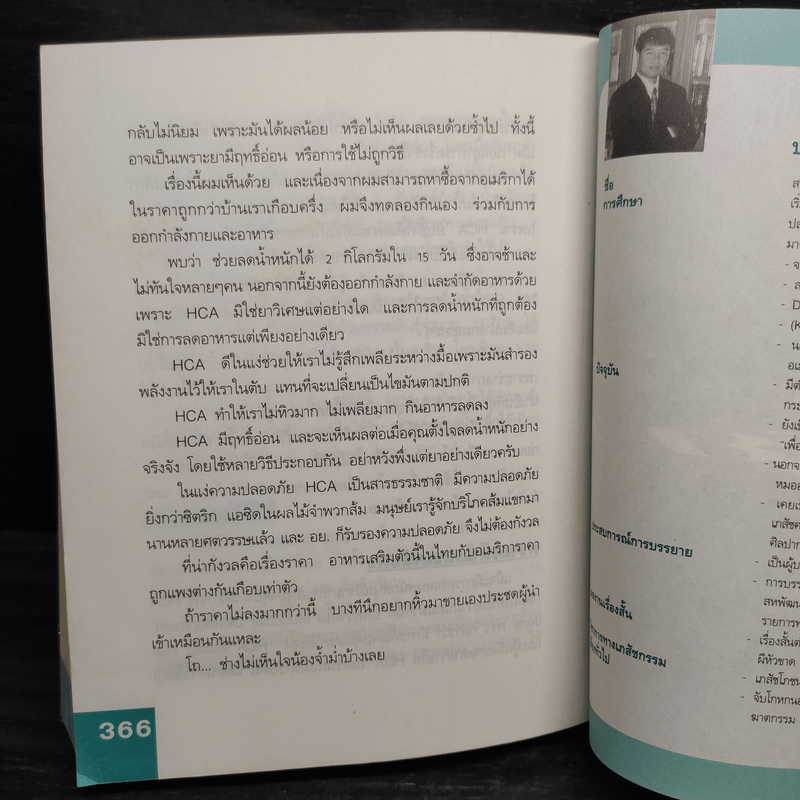 กลับไม่นิยม เพราะมันได้ผลน้อย หรือไม่เห็นผลเลยด้วยซ้ำไป ทั้งนี้
อาจเป็นเพราะยามีฤทธิ์อ่อน หรือการใช้ไม่ถูกวิธี
เรื่องนี้ผมเห็นด้วย และเนื่องจากผมสามารถหาซื้อจากอเมริกาได้
ในราคาถูกกว่าบ้านเราเกือบครึ่ง ผมจึงทดลองกินเอง ร่วมกับการ
ออกกำลังกายและอาหาร
พบว่า ช่วยลดน้ำหนักได้ 2 กิโลกรัมใน 15 วัน ซึ่งอาจช้าและ
ไม่ทันใจหลายๆคน นอกจากนี้ยังต้องออกกำลังกาย และจำกัดอาหารด้วย
เพราะ HCA มิใช่ยาวิเศษแต่อย่างใด และการลดน้ำหนักที่ถูกต้อง
มิใช่การลดอาหารแต่เพียงอย่างเดียว
HCA ดีในแง่ช่วยให้เราไม่รู้สึกเพลียระหว่างมื้อเพราะมันสำรอง
พลังงานไว้ให้เราในตับ แทนที่จะเปลี่ยนเป็นไขมันตามปกติ
HCA ทำให้เราไม่หิวมาก ไม่เพลียมาก กินอาหารลดลง
HCA มีฤทธิ์อ่อน และจะเห็นผลต่อเมื่อคุณตั้งใจลดน้ำหนักอย่าง
จริงจัง โดยใช้หลายวิธีประกอบกัน อย่าหวังพึ่งแต่ยาอย่างเดียวครับ
ในแง่ความปลอดภัย HCA เป็นสารธรรมชาติ มีความปลอดภัย
ยิ่งกว่าซิตริก แอซิดในผลไม้จำพวกส้ม มนุษย์เรารู้จักบริโภคส้มแขกมา
นานหลายศตวรรษแล้ว และ อย. ก็รับรองความปลอดภัย จึงไม่ต้องกังวล
ที่น่ากังวลคือเรื่องราคา อาหารเสริมตัวนี้ในไทยกับอเมริการาคา
ถูกแพงต่างกันเกือบเท่าตัว
ถ้าราคาไม่ลงมากกว่านี้ บางทีนึกอยากหิ้วมาขายเองประชดผู้นำ
เข้าเหมือนกันแหละ
โถ... ช่างไม่เห็นใจน้องจ้ำม่ำบ้างเลย
366
ชื่อ
การศึกษา
ปัจจุบัน
ประสบการณ์การบรรยาย
- D
- (K
- มีต่
กระ
- ยังเป็
"เพื่อ
- นอกจ
หมออ
- เคยเป็
เภสัชค
ศิลปาก
- เป็นผู้บ
- การบรร
สหพัฒน
รายการท
- เรื่องสั้นต
ผีหัวขาด
- เภสัชโภชน
- จับโกหกนอ
ฆาตกรรม